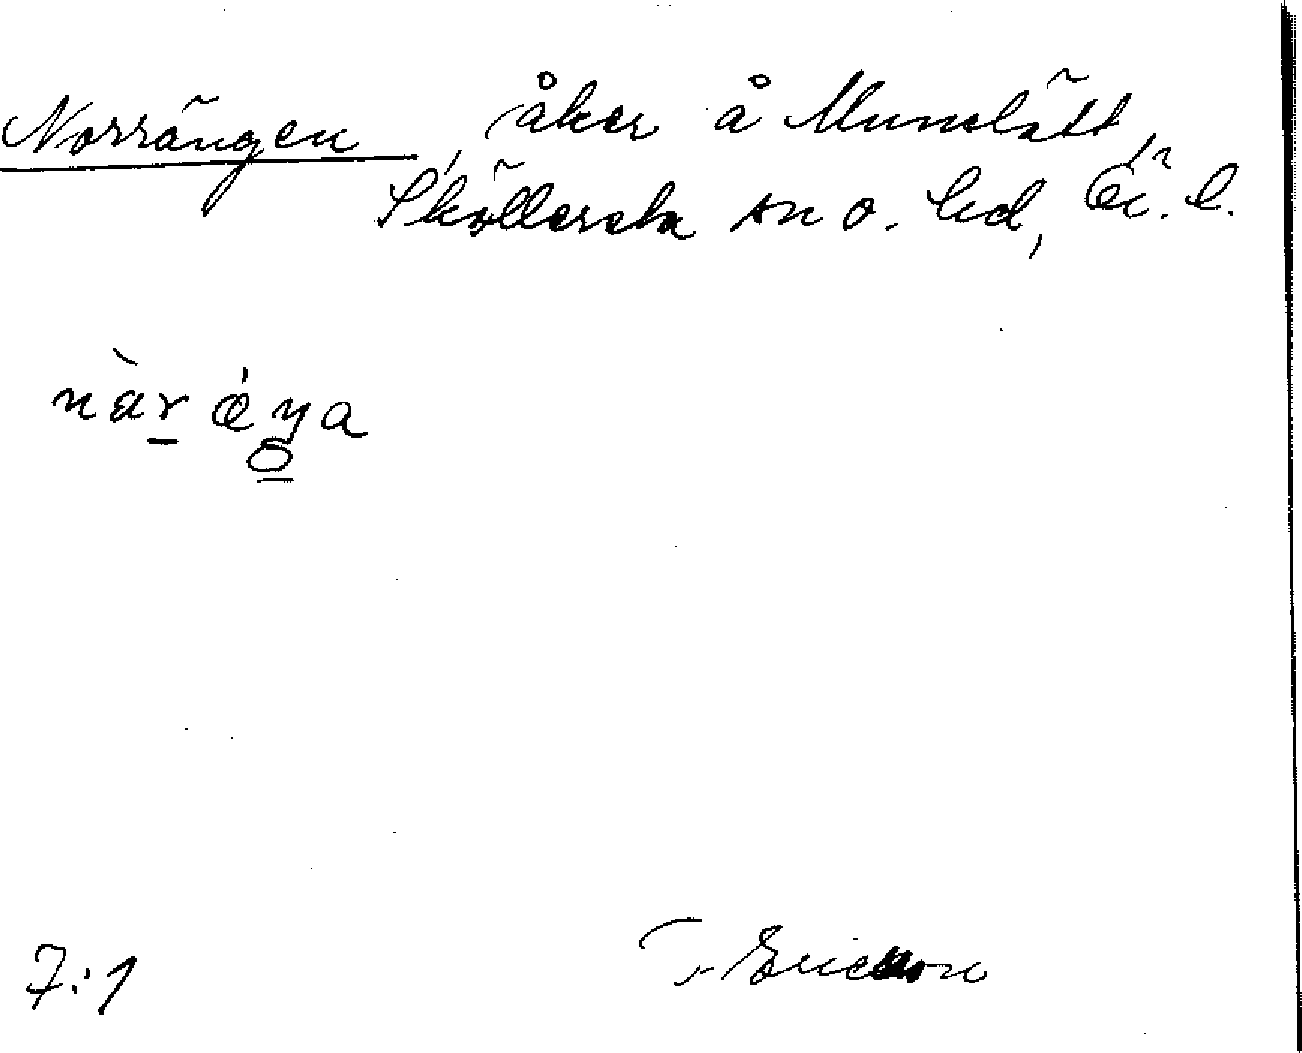 Norrängen, åker å Munslätt,
Sköllersta sn o. hd, Ö. l.
nàr ǿŋa
7:1
T. Ericsson